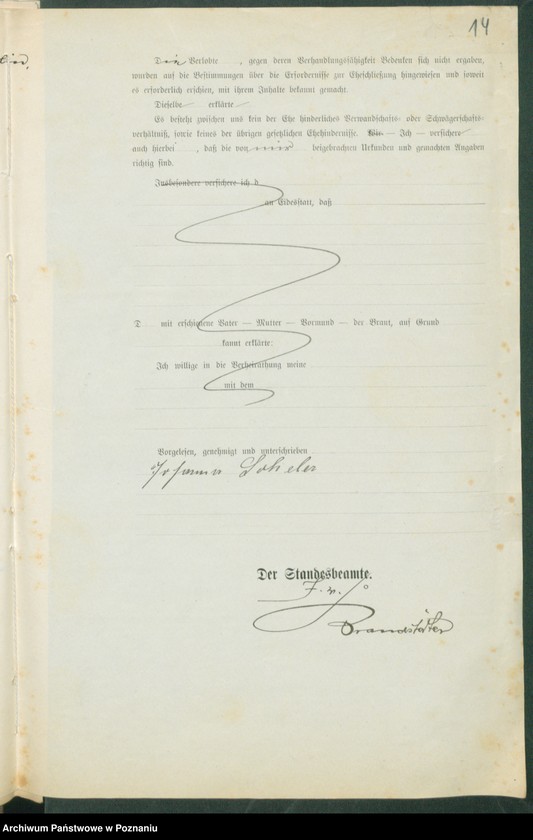 14
Die Verlobte, gegen deren Verhandlungsfähigkeit Bedenken sich nicht ergaben,
wurden auf die Bestimmungen über die Erfordernisse zur Eheschließung hingewiesen und soweit
es erforderlich erschien, mit ihrem Inhalte bekannt gemacht.
Dieselbe erklärte
Es besteht zwischen uns kein der Ehe hinderliches Verwandschafts- oder Schwägerschafts-
verhältniß, sowie keines der übrigen gesetzlichen Ehehindernisse. Wir — Ich — versichere
auch hierbei, daß die von mir beigebrachten Urkunden und gemachten Angaben
richtig sind.
Insbesondere versichere ich d
an Eidesstatt, daß
D mit erschienene Vater — Mutter — Vormund — der Braut, auf Grund
kannt erklärte:
Ich willige in die Verheirathung meine
mit dem
Vorgelesen, genehmigt und unterschrieben
Johann
Der Standesbeamte.
J. v.
Brandstäter
Archiwum Państwowe w Poznaniu